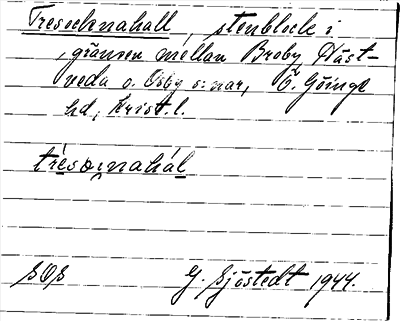 Tresocknahall, stenblock i
gränsen mellan Broby, Häst-
veda o. Osby s:nar, Ö. Göinge
hd, Krist. l.
SOS G. Sjöstedt 1944.